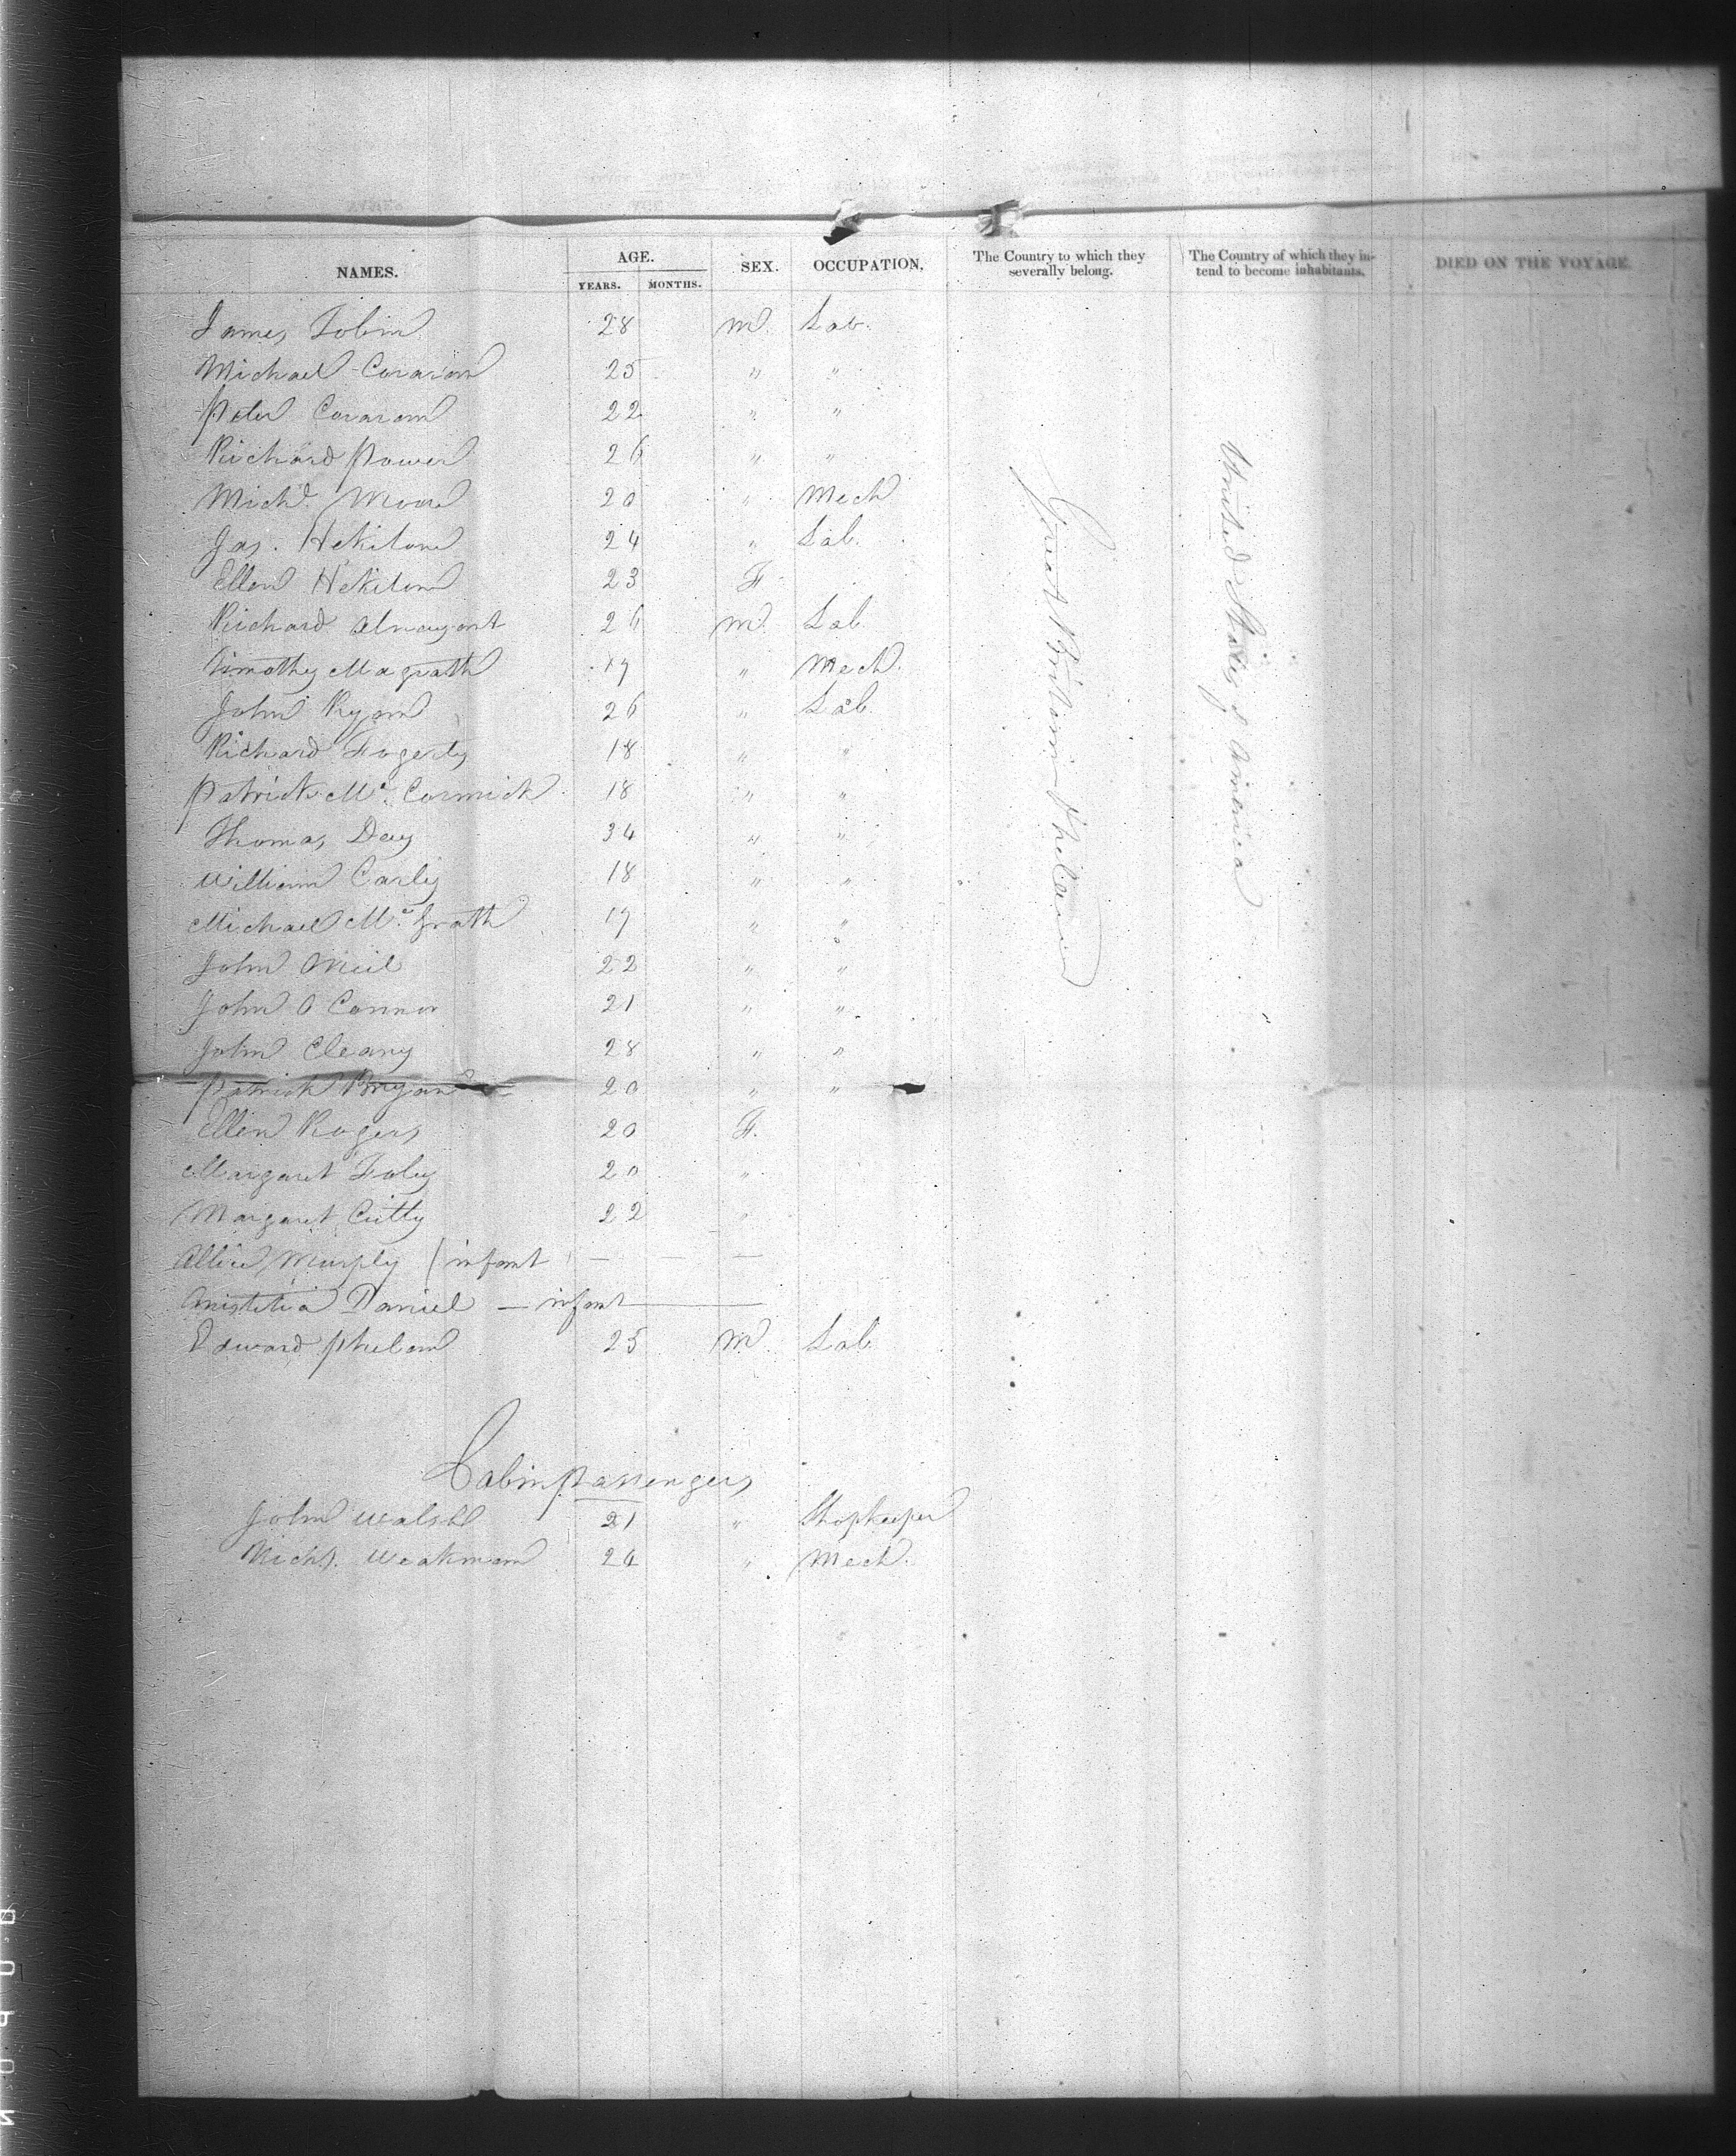 NAMES. AGE. YEARS. MONTHS. SEX. OCCUPATION. The Country to which they severally belong. The Country of which they intend to become inhabitants. DIED ON THE VOYAGE.
James Tobin 28 M. Lab.
Michael 25 " "
Peter 22 " "
Richard Power 26 " "
Michl. Moore 20 " Mech
Jas. Hekilone 24 " Lab.
Ellen Hekilone 23 F
Richard 26 M. Lab
Timothy Magrath 19 " Mech.
John Ryan 26 " Lab.
Richard Fogerty 18 " "
Patrick Mc. Cormick 18 " "
Thomas Day 34 " "
William Carly 18 " "
Michael Mc. Grath 19 " "
John ONeil 22 " "
John O Connor 21 " "
John Cleary 28 " "
Patrick Bryan 20 " "
Ellen Rogers 20 F.
Margaret Foley 20 "
Margaret 22 "
Murphy / infant — — —
Daniel — infant —
Edward Phelan 25 M. Lab
Great Britain & Ireland
United States of America
Cabin Passengers
John Walsh 21 " Shopkeeper
Weakman 24 " Mech.